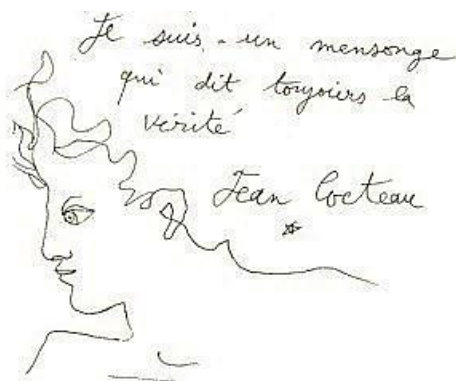 Je suis un mensonge
qui dit toujours la
vérité
Jean Cocteau